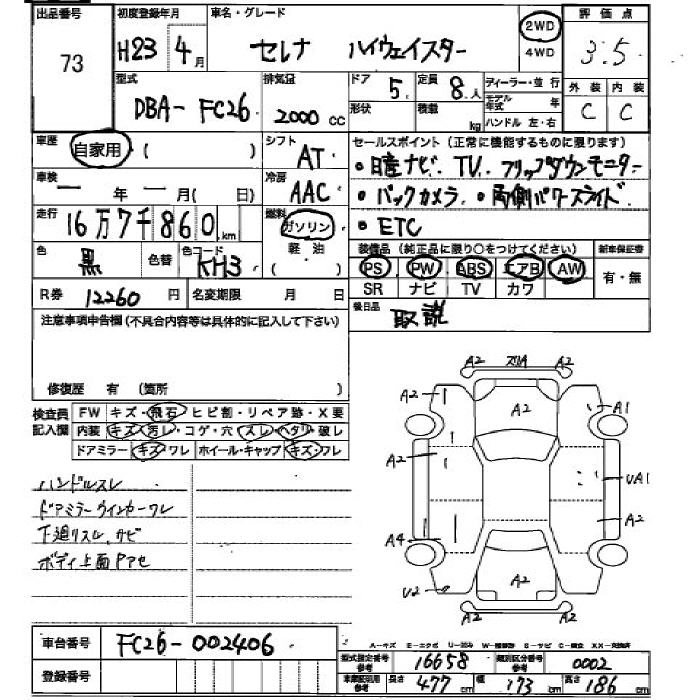 出品番号 初度登録年月 車名・グレード 評価点
73 H23 4月 セレナ ハイウェイスター 2WD 4WD 3.5
型式 排気量 ドア 定員 ディーラー・並行 外装 内装
DBA-FC26 2000cc 5 8人 モデル年式 年 C C
形状 積載 kg ハンドル 左・右
車歴 自家用 ( ) シフト AT セールスポイント(正常に機能するものに限ります)
・日産ナビ. TV. フリップダウンモニター
車検 ー年ー月( 日) 冷房 AAC ・バックカメラ ・両側パワースライド
走行 16万7千860km 燃料 ガソリン ・ETC
軽油 ( )
色 黒 色替 色コード KH3 装備品(純正品に限り○をつけてください) 新車保証書
PS PW ABS エアB AW 有・無
SR ナビ TV カワ
R券 12260円 名変期限 月 日 後日品 取説
注意事項申告欄(不具合内容等は具体的に記入して下さい)
修復歴 有 (箇所 )
検査員記入欄 FW キズ・飛石・ヒビ割・リペア跡・X要
内装 キズ・汚レ・コゲ・穴・スレ・ヘタリ・破レ
ドアミラー キズ・ワレ ホイール・キャップ キズ・ワレ
ハンドルスレ
ドアミラーウインカーワレ
下廻リスレ、サビ
ボディ上面Pアセ
A2 スリA A2
A2 A2 A1
A2 UA1
A2
A4
U2 A2
A2 A2
車台番号 FC26-002406
登録番号
型式指定番号 参考 16658 類別区分番号 参考 0002
車庫証明用 参考 長さ 477cm 幅 173cm 高さ 186cm